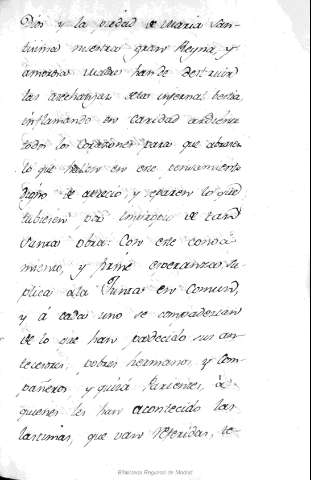 Dios y la piedad de Maria San-
tisima nuestra gran Reyna, y
amorosa Madre han de destruir
las asechanzas de la infernal bestia,
inflamando en caridad ardiente
todos los corazones para que abracen
lo que hallen en este pensamiento
digno de aprecio, y reparen lo que
tubieren por impropio de tan
Santa obra: Con este conoci-
miento, y firme esperanza, su-
plica a la Junta en Comun,
y á cada uno se compadezcan
de lo que han padecido sus an-
tecesores, pobres hermanos y Com-
pañeros y quizá Parientes, á
quienes les han acontecido las
lastimas, que van referidas, se-
Biblioteca Regional de Madrid